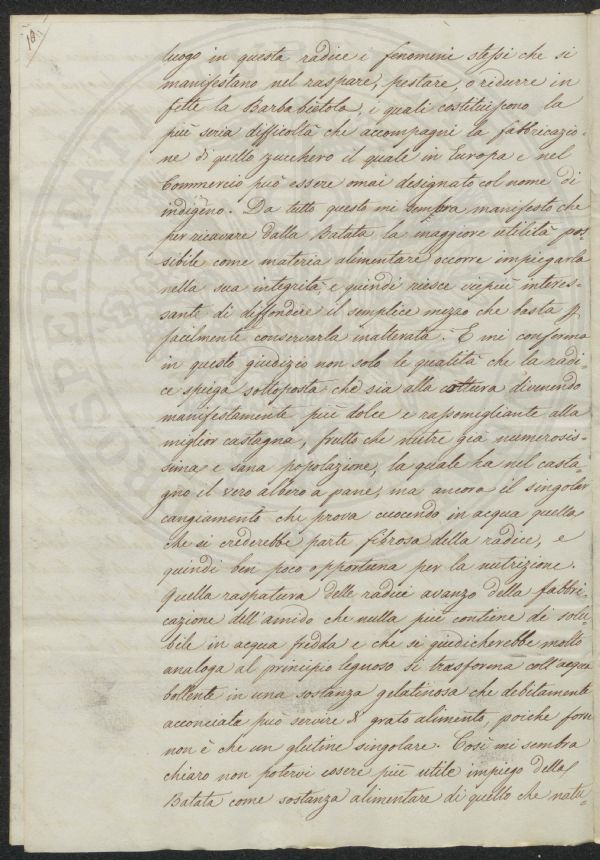 10.
luogo in questa radice i fenomeni stessi che si
manifestano nel raspare, pestare, o ridurre in
fette la Barbabietola, i quali costituiscono la
più seria difficoltà che accompagni la fabbricazio-
ne di quello zucchero il quale in Europa e nel
Commercio può essere omai designato col nome di
indigeno. Da tutto questo mi sembra manifesto che
per ricavare dalla Batata la maggiore utilità pos
sibile come materia alimentare occorre impiegarla
nella sua integrità e quindi riesce viepiù interes-
sante di diffondere il semplice mezzo che basta p
facilmente conservarla inalterata. E mi conferma
in questo giudizio non solo le qualità che la radi-
ce spiega sottoposta che sia alla cottura divenendo
manifestamente più dolce e rassomigliante alla
miglior castagna, frutto che nutre già numerosis-
sima e sana popolazione, la quale ha nel casta-
gno il vero albero a pane, ma ancora il singolar
cangiamento che prova cuocendo in acqua quella
che si crederebbe parte fibrosa della radice, e
quindi ben poco opportuna per la nutrizione.
Quella raspatura delle radici avanzo della fabbri-
cazione dell'amido che nulla più contiene di solu-
bile in acqua fredda e che si giudicherebbe molto
analoga al principio legnoso si trasforma coll'acqua
bollente in una sostanza gelatinosa che debitamente
acconciata può servire di grato alimento, poiche forse
non è che un glutine singolare. Così mi sembra
chiaro non potervi essere più utile impiego della
Batata come sostanza alimentare di quello che natu-
PROSPERITATI